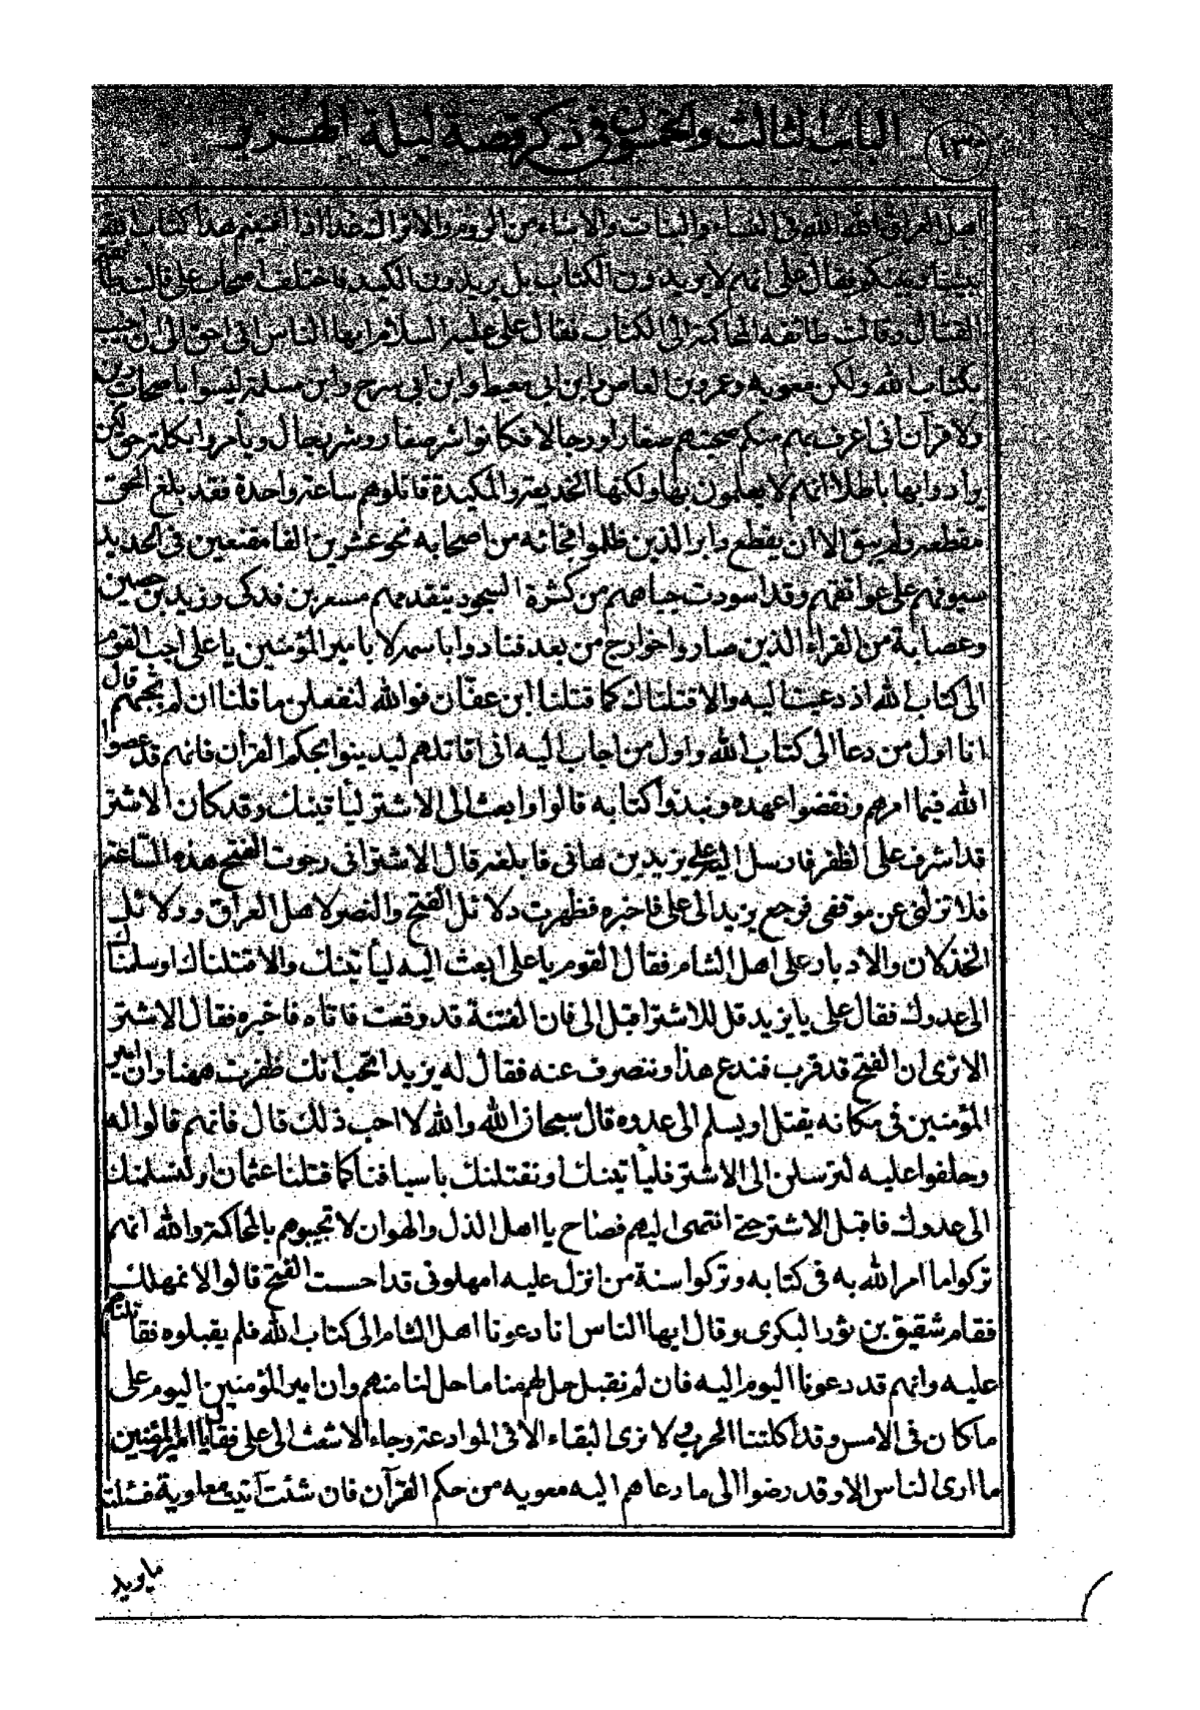 الباب الثالث والخمسون فى ذكر قصة ليلة الهرير
١٣٠
اهل العراق الله الله فى النساء والبنات والابناء من الروم والاتراك غدا اذا افنيتم هذا كتاب الله
بيننا وبينكم فقال على انهم لا يريدون الكتاب بل يريدون الكيد فاختلف اصحاب على قالت طائفة
القتال وقالت طائفه المحاكمة الى الكتاب فقال على عليه السلام ايها الناس انى احق الى ان اجيب
بكتاب الله ولكن معويه وعمرو بن العاص وابن ابى معيط وابن ابى سرح وابن مسلمة ليسوا باصحاب دين
ولا قرآن انى اعرف بهم منكم صحبتهم صغارا ورجالا فكانوا شر صغار وشر رجال ويأمروا بكلمة حق لكن
وادوا بها باطلا انهم لا يعلمون بها ولكنها الخديعة والمكيدة قاتلوهم ساعة واحدة فقد بلغ الحق
مقطعه ولم يبق الا ان يقطع دابر الذين ظلموا فجائه من اصحابه نحو عشرين الفا مقنعين فى الحديد
سيوفهم على عواتقهم وقد اسودت جباههم من كثرة السجود يتقدمهم مسعر بن فدكى وزيد بن حصين
وعصابة من القراء الذين صاروا خوارج من بعد فنادوا باسمه لا بامير المؤمنين يا على اجب القوم
الى كتاب الله اذ دعيت اليه والا قتلناك كما قتلنا ابن عفان فوالله لنفعلن ما قلنا ان لم تجبهم قال
انا اول من دعا الى كتاب الله واول من اجاب اليه انى اقاتلهم ليدينوا بحكم القرأن فانهم قد عصوا
الله فيما امرهم ونقضوا عهده ونبذوا كتابه قالوا وابعث الى الاشتر ليأتينك وقد كان الاشتر
قد اشرف على الظفر فارسل اليه على يزيد بن هانى فابلغه قال الاشتر انى رجوت الفتح هذه الساعة
فلا تزلنى عن موقفى فرجع يزيد الى على فاخبره فظهرت دلائل الفتح والنصر لاهل العراق ودلائل
الخذلان والادبار على اهل الشام فقال القوم يا على ابعث اليه ليأتينك والا قتلناك او سلمناك
الى عدوك فقال على يا يزيد قل للاشتر اقبل الى فان الفتنة قد وقعت فاتاه فاخبره فقال الاشتر
الا ترى ان الفتح قد قرب فندع هذا وننصرف عنه فقال له يزيد اتحب انك ظفرت ههنا وان امير
المؤمنين فى مكانه يقتل او يسلم الى عدوه قال سبحان الله والله لا احب ذلك قال فانهم قالوا له
وحلفوا عليه لترسلن الى الاشتر فليأتينك او نقتلنك باسيافنا كما قتلنا عثمان او لنسلمنك
الى عدوك فاقبل الاشتر حتى انتهى اليهم فصاح يا اهل الذل والهوان لا تجيبوهم بالمحاكمة والله انهم
تركوا ما امر الله به فى كتابه وتركوا سنة من انزل عليه امهلونى قد احست الفتح قالوا لا نمهلك
فقام شقيق بن ثور البكرى وقال ايها الناس انا دعونا اهل الشام الى كتاب الله فلم يقبلوه فقاتلناهم
عليه وانهم قد دعونا اليوم اليه فان لم نقبل حل لهم منا ما حل لنا منهم وان امير المؤمنين اليوم على
ما كان فى الامس وقد اكلتنا الحرب ولا نرى البقاء الا فى الموادعة وجاء الاشعث الى على فقال يا امير المؤمنين
ما ارى الناس الا وقد رضوا الى ما دعاهم اليه معويه من حكم القرآن فان شئت آتيت معاوية فسئلته
ما يريد